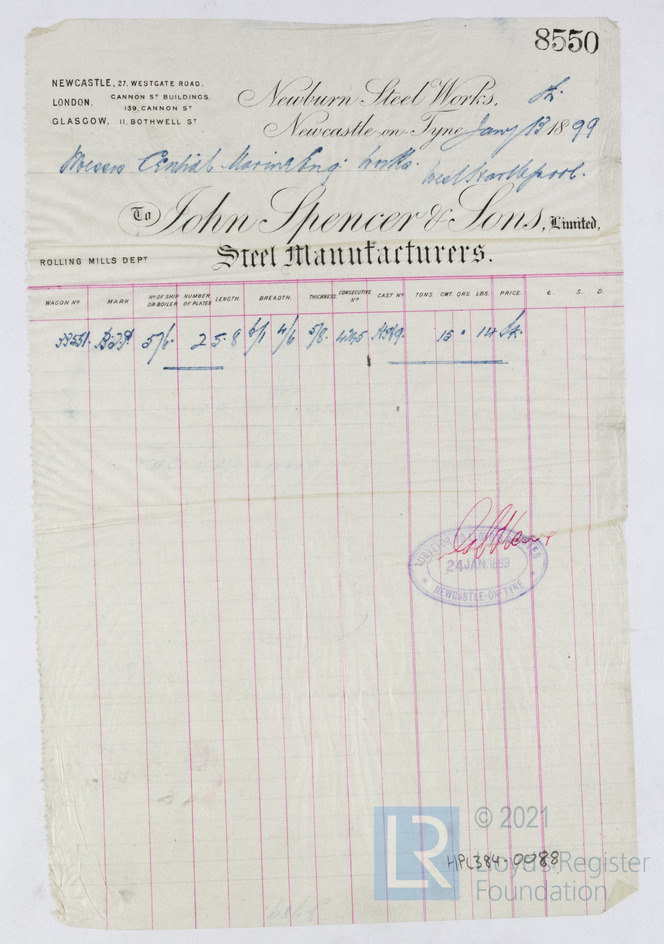 8550
NEWCASTLE, 27, WESTGATE ROAD.
LONDON, CANNON ST BUILDINGS, 139, CANNON ST
GLASGOW, 11, BOTHWELL ST
Newburn Steel Works,
Newcastle-on-Tyne Jany 13 1899
Messrs Central Marine Eng. Works. West Hartlepool.
To John Spencer & Sons, Limited,
Steel Manufacturers.
ROLLING MILLS DEPT
WAGON No MARK No OF SHIP OR BOILER NUMBER OF PLATES LENGTH. BREADTH. THICKNESS. CONSECUTIVE No CAST No TONS. CWT. QRS. LBS. PRICE. £. S. D.
2 5 8 4/6 5/8 15 " 14
SURVEYOR TO LLOYD'S REGISTER
24 JAN. 1899
NEWCASTLE-ON-TYNE
LR
© 2021
HPL384-0088
Lloyd's Register
Foundation